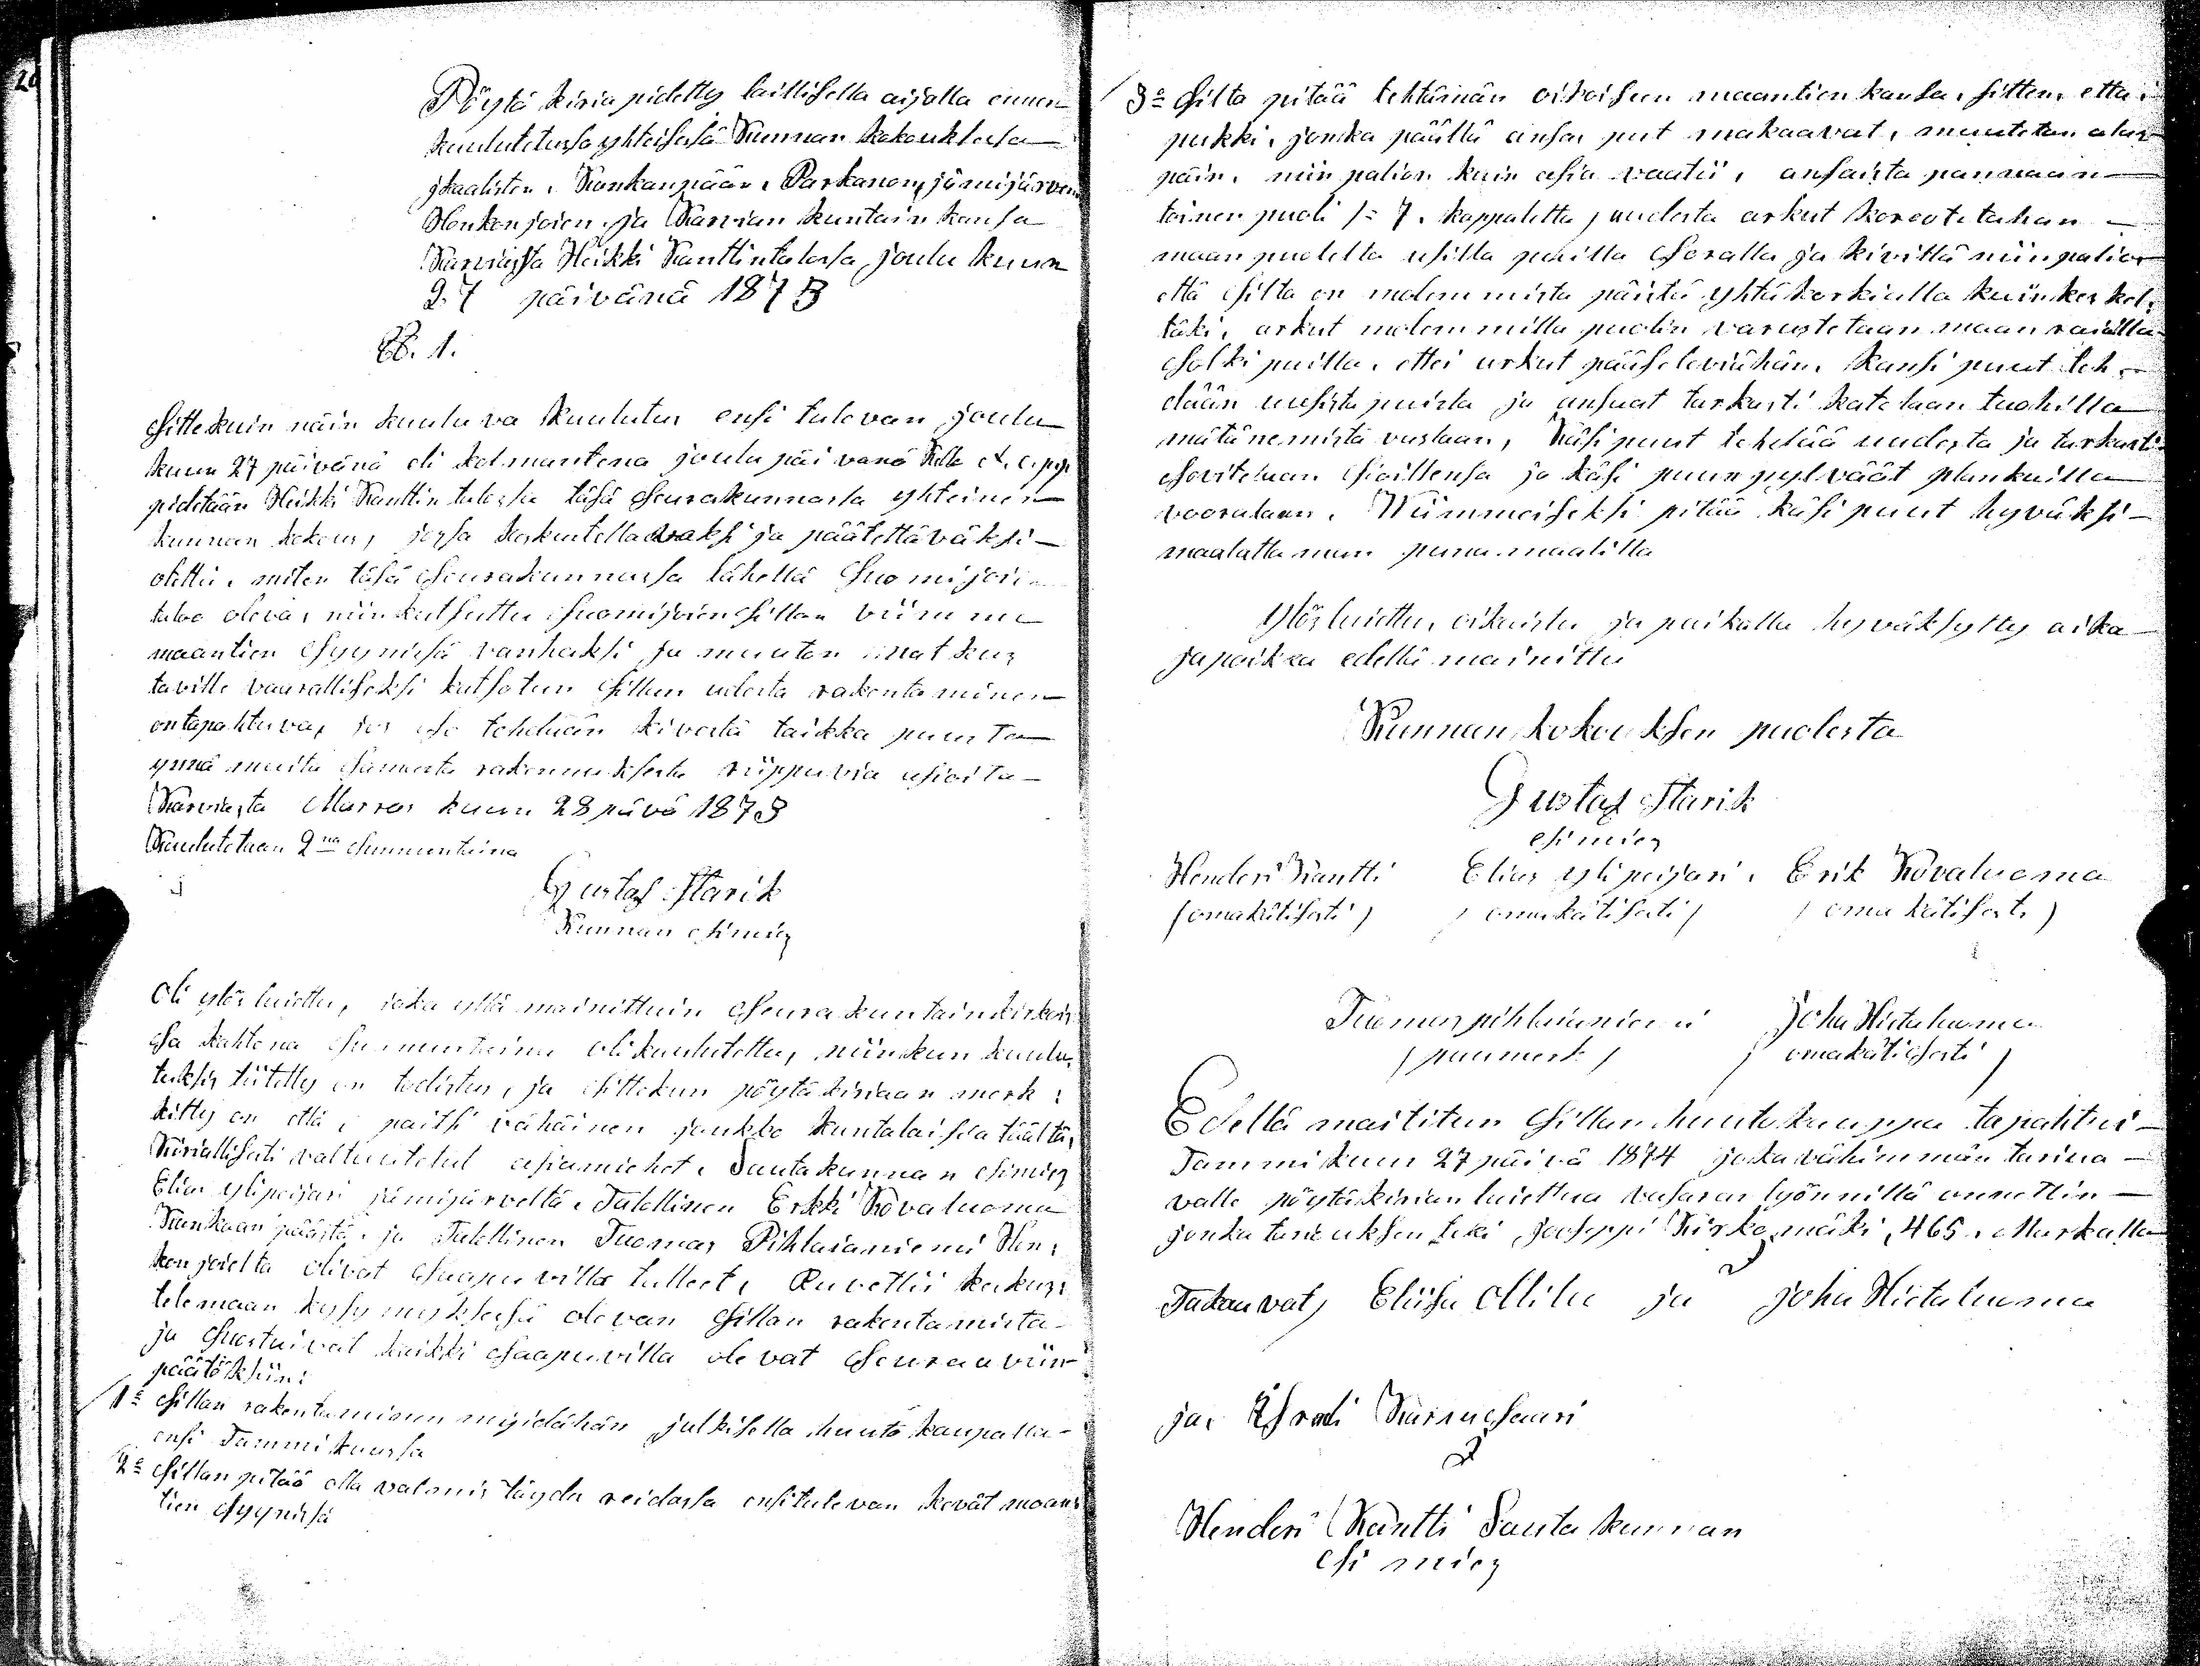 Pöytä kirja pidetty laillisella aijalla ennen
kuulutetussa yhteisesä Kunnan kokouksessa
jkaalisten, Kankanpään, Parkanon, jämijärven
Honkonjoien, ja Karvian kuntain kansa
Karviasta Heikki Kanttin talossa joulu kuun
27 päivänä 1873
§. 1.
Sittekuin näin kuuluva kuulutus ensi tulevan joulu
kuun 27 päivänä eli kolmantena joulu päivänä Kello e. pp
pidetään Heikki Kanttin talossa täsä Seurakunnassa yhteinen
kunnan kokous, jossa keskusteltavaksi ja päätettäväksi
otettii, miten täsä Seurakunnassa lähellä Suomijoen
taloo oleva, niin kutsuttu Suomijoien Sillan viimme
maantien Syynisä vanhaksi ja muuton matkus
taville vaaralliseksi katsotun Sillan udesta rakentaminen
on tapahtuva, jos se tehdään kivestä taikka puusta
ynnä muita Samasta rakennuksesta riippuvia asioita
Karviasta Marras kuun 28 päivä 1873
Kuulutetaan 2na Sunnuntaina
Gustaf Starik
Kunnan esimies
Oli ylös luettu, joka yllä mainittuin Seurakuntain kirkois
Sa kahtena Sunnuntaina oli kuulutettu, niinkun kuulu,
tuksis tiitetty on todistus, ja Sittekun pöytäkirjaan merk:
kitty on että, paitsi vähäinen joukko kuntalaisia täältä,
Kirjallisesti valtuutetut asiamiehet, Lautakunnan esimies
Elias ylipeijari jämijärveltä, Talollinen Erkki Kovaluoma
Kankaan päästä, ja Talollinen Tuomas Pihlaianiemi Hon:
kon joielta olivat Saapuvilla tulleet, Ruvettii keskus:
telemaan kysymyksesä olevan Sillan rakentamista
ja Suostuivat kaikki Saapuvilla olevat Seuraaviin
päätöksiin:
1o Sillan rakentaminen myidähän julkisella huuto kaupalla
ensi Tammi kuussa
2o Sillan pitää olla valmis täydes reidassa ensitulevan kevät maan
tien Syynisä
3o Silta pitää tehtämän oikoisen maantien kansa, Sitten, että
pukki, jonka päällä ansas puut makaavat, muutetan alas
päin, niin palion kuin asia vaatii, ansaista pannaan
toinen puoli /= 7. kappaletta / uudesta arkut koreotetahan
maan puolelta usilla puilla Soralla ja kivillä niin palion
että Silta on molemmista päistä yhtä korkialla kuin keskel:
täki, arkut molemmilla puolin varustetaan maan raialla
Solki puilla, ettei arkut pääse leviähän. Kansi puut teh
dään uusista puista ja ansaat tarkasti katetaan tuohilla
mätänemistä vastaan, Käsi puut tehdää uudesta ja tarkasti
Sovitetaan Sioillensa ja käsi puun pylväät plankuilla
voorataan. Wiimmeiseksi pitää käsi puut hyväksi
maalattaman puna maalilla
Ylös luettu, oikaistu ja paikalla hyväksytty aika
ja paikka edellä mainittu
Kunnan kokouksen puolesta
Gustaf Starik
esimies
Henderi Kantti Elias ylipeijari, Erik Kovaluoma
(omakätisesti) (omakätisesti) (omakätisesti)
Tuomas pihlaianiemi Joha Hietaluoma
(puumerk) (omakätisesti)
Edellä maititun Sillan huuto kauppa tapahtui
Tammikuun 27 päivä 1874 joka vähimmän tarioa
valle pöytäkirian luettua vasaran lyönnillä annettin
jonka tariouksen teki jooseppi Kirkomäki, 465. Markalla
Takauvat, Eliisa Ollila ja joha Hietaluoma
ja, Isrodi Karvasaari
Henderi Kantti Lautakunnan
esimies